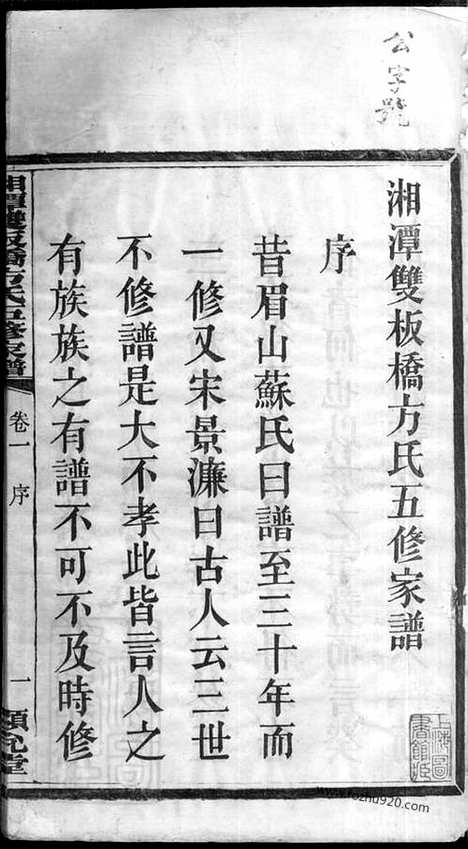 公字號
湘潭雙板橋方氏五修家譜
序
昔眉山蘇氏曰譜至三十年而
一修又宋景濂曰古人云三世
不修譜是大不孝此皆言人之
有族族之有譜不可不及時修
湘潭雙板橋方氏五修家譜
卷一
序
一
上海圖書館藏